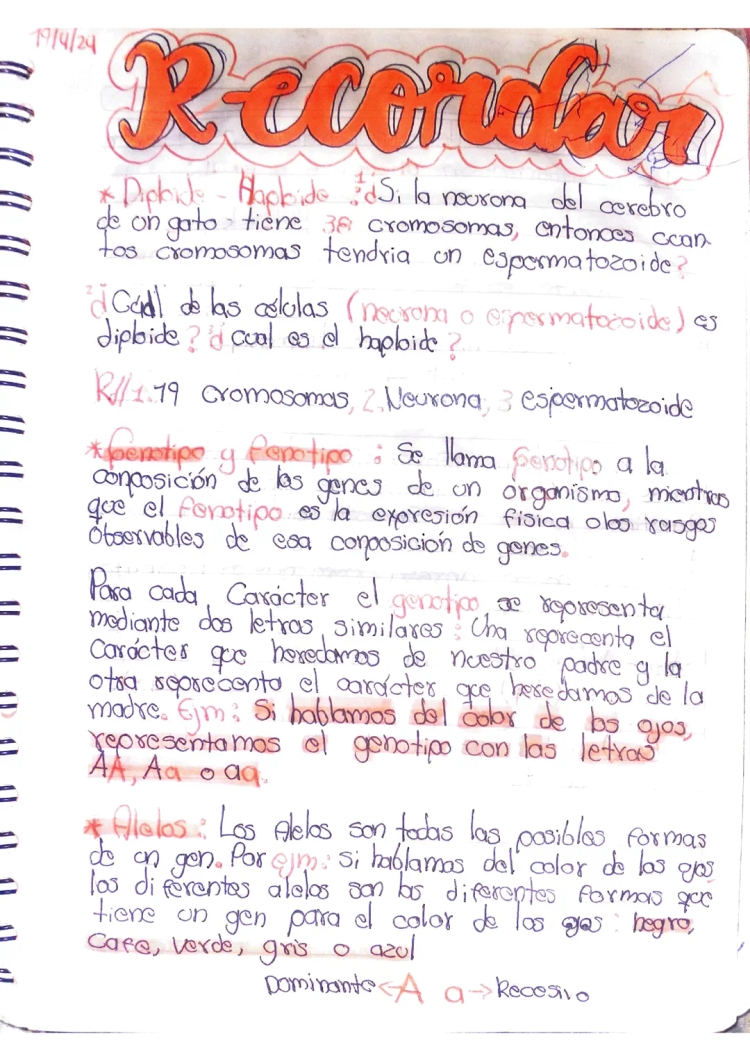 19/4/24
Recordar
* Diploide - Haploide : 1. ¿Si la neurona del cerebro
de un gato tiene 38 cromosomas, entonces cuan
tos cromosomas tendria un espermatozoide?
2. ¿Cuál de las células (neurona o espermatozoide) es
diploide? 3. ¿cual es el haploide?
R// 1. 19 cromosomas, 2. Neurona, 3 espermatozoide
* Genotipo y fenotipo : Se llama genotipo a la
conposición de los genes de un organismo, mientras
que el fenotipo es la expresión fisica o los rasgos
Observables de esa conposición de genes.
Para cada Carácter el genotipo se representa
mediante dos letras similares : Una reprecenta el
Carácter que heredamos de nuestro padre y la
otra reprecenta el carácter que heredamos de la
madre. Ejm: Si hablamos del color de los ojos,
representamos el genotipo con las letras
AA, Aa o aa.
* Alelos : Los Alelos son todas las posibles formas
de un gen. Por ejm: si hablamos del color de los ojos
los diferentes alelos son los diferentes formas que
tiene un gen para el color de los ojos : negro,
Cafe, verde, gris o azul
Dominante <- A a -> Recesivo